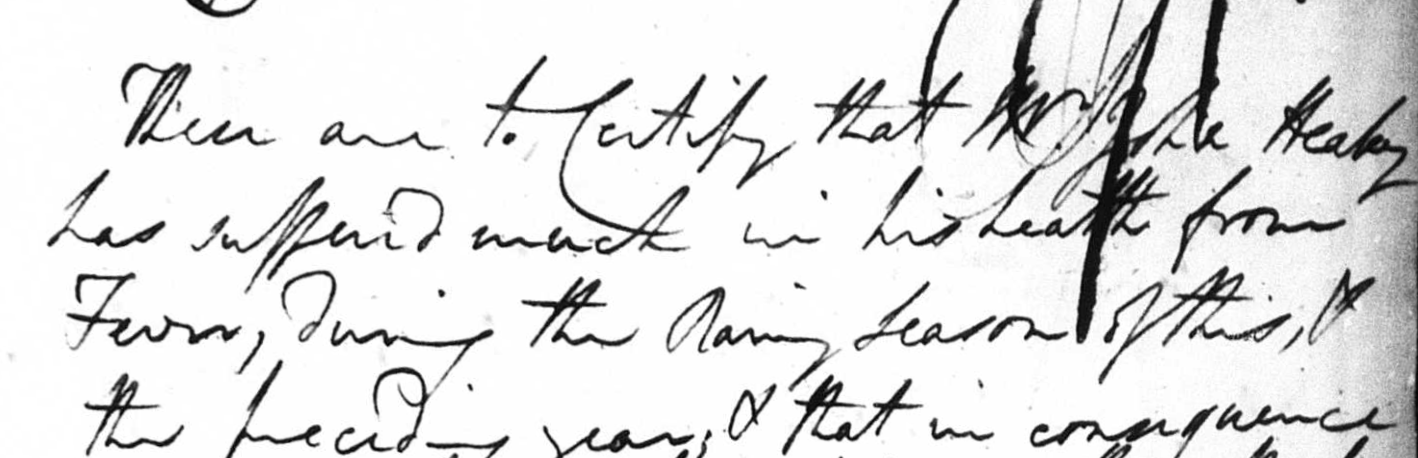 These are to Certify that Mr John Heaky
has sufferd much in his health from
Fever, during the Rainy Season of this, &
the preceding year; & that in consequence